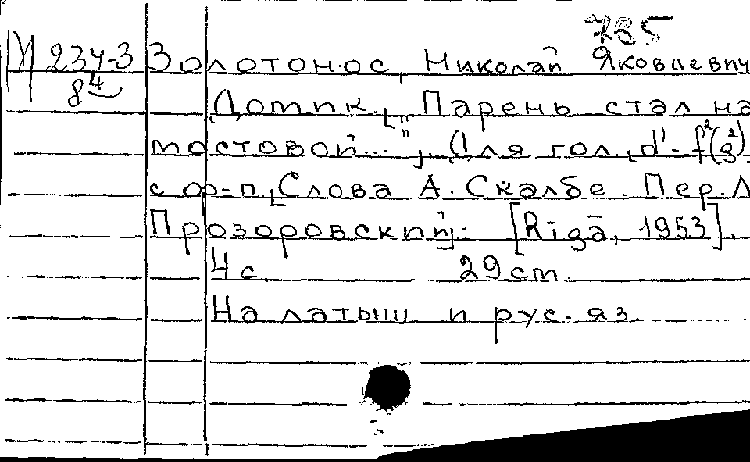 735
М 234-3 Золотонос, Николай Яковлевич
8⁴ Домик. ["Парень стал на
мостовой..."]. Для гол. d'-f²(g²)
с ф-п. [Слова А. Скалбе. Пер. Л.
Прозоровский]. [Rīgā, 1953].
4 с. 29 cm.
На латыш и рус. яз.